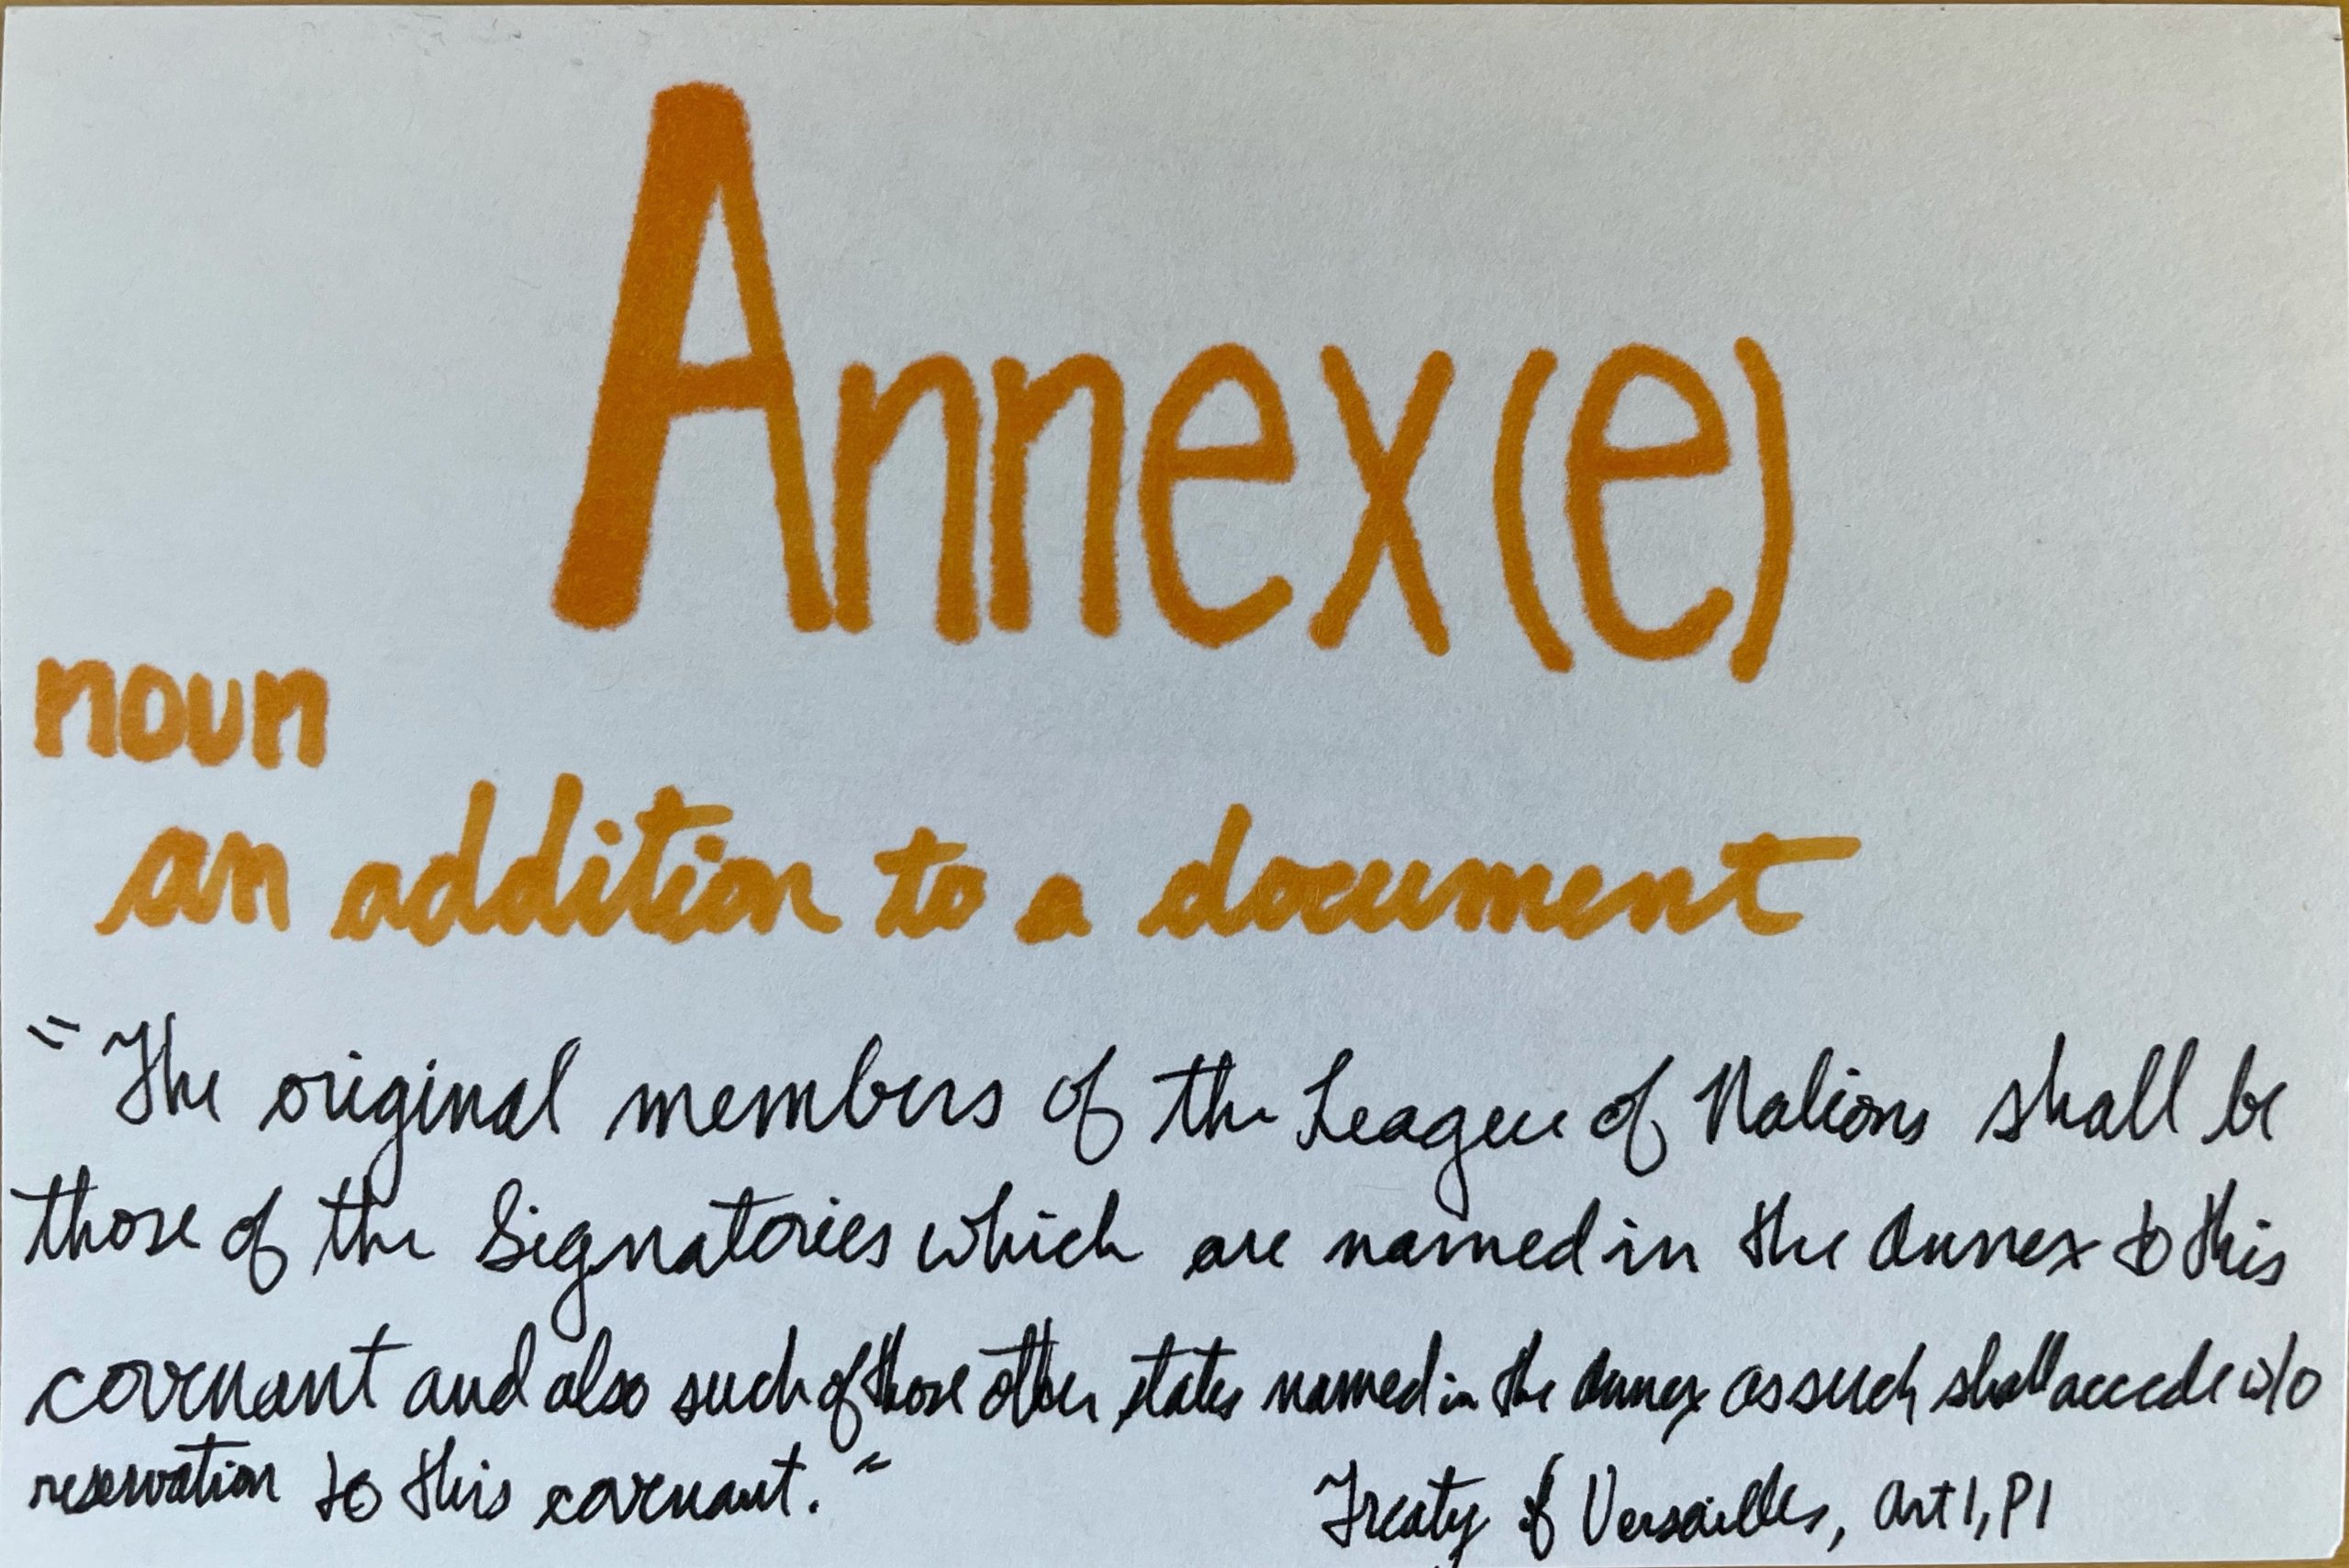 Annex(e)
noun
an addition to a document
"The original members of the League of Nations shall be
those of the Signatories which are named in the Annex to this
covenant and also such of those other states named in the Annex as such shall accede w/o
reservation to this covenant."
Treaty of Versailles, Art 1, P1